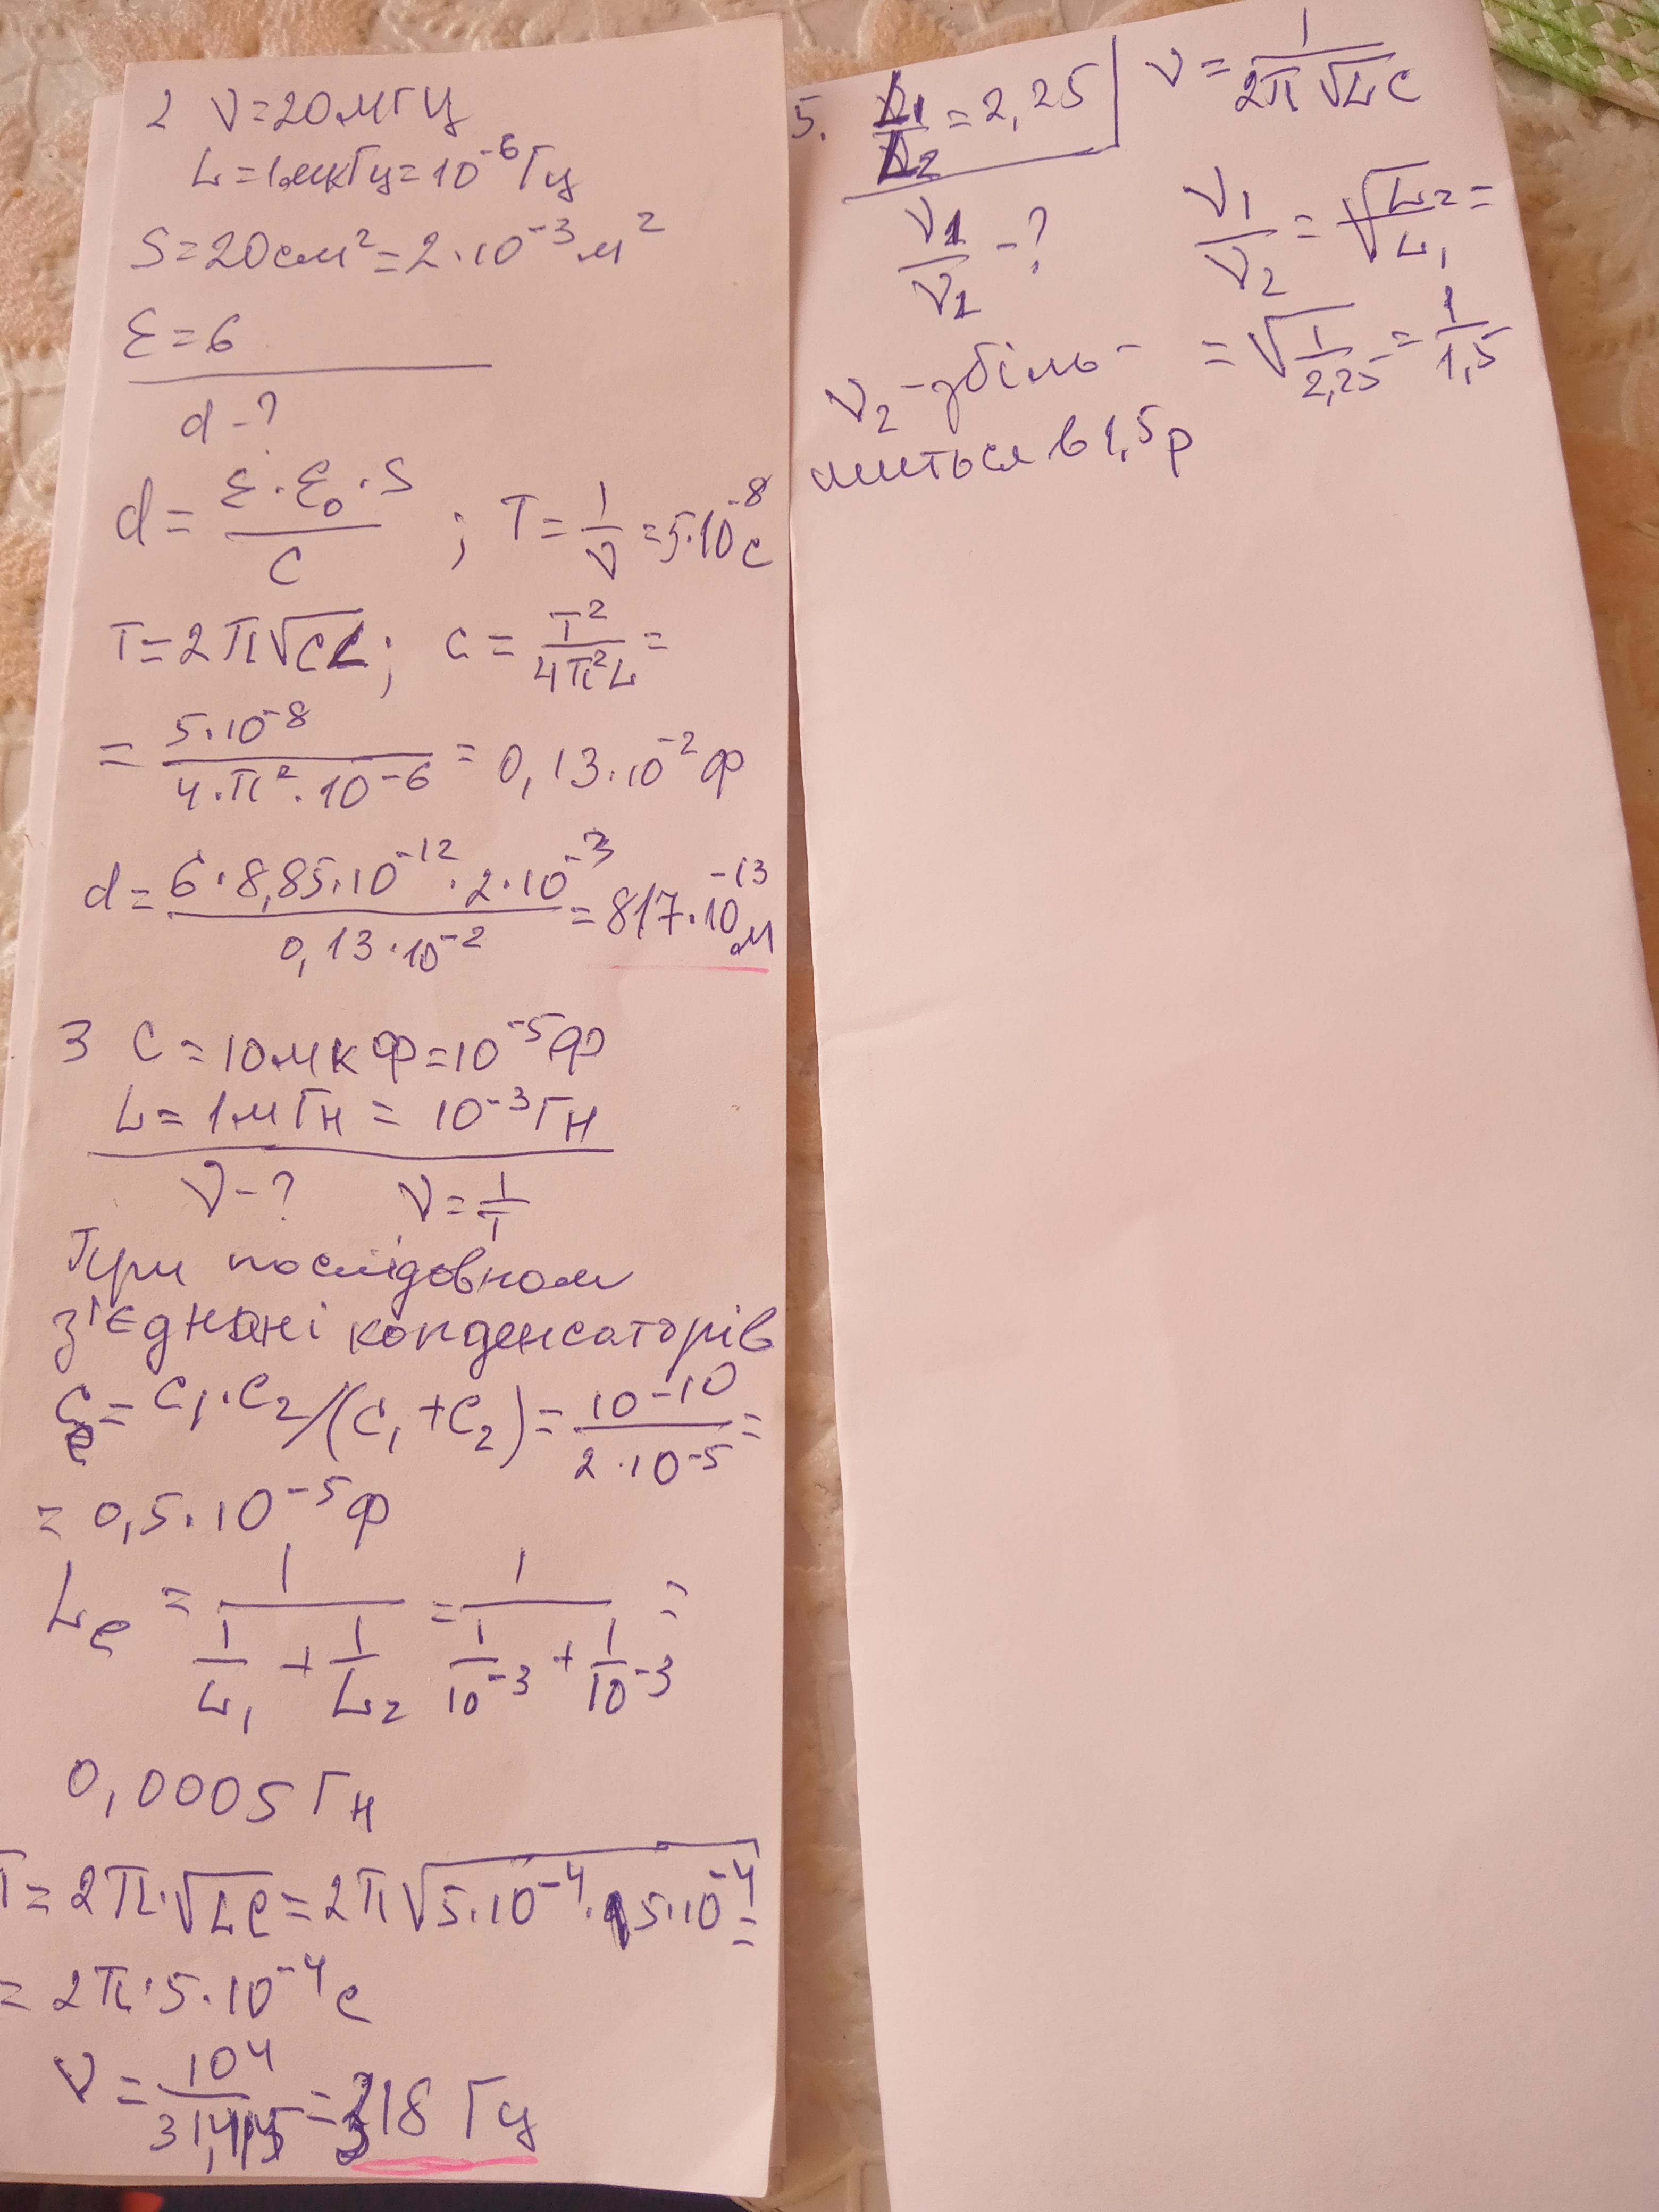 2 ν=20мГц
L=1мкГц=10⁻⁶Гц
S=20см²=2·10⁻³м²
ε=6
d-?
d=ε·ε₀·S/C ; T=1/ν=5·10⁻⁸с
T=2π√CL; C=T²/4π²L=
=5·10⁻⁸/4·π²·10⁻⁶=0,13·10⁻²Ф
d=6·8,85·10⁻¹²·2·10⁻³/0,13·10⁻²=817·10⁻¹³м
3 C=10мкФ=10⁻⁵Ф
L=1мГн=10⁻³Гн
ν-? ν=1/T
При послідовном
з'єднані конденсаторів
Cе=C₁·C₂/(C₁+C₂)=10⁻¹⁰/2·10⁻⁵=
=0,5·10⁻⁵Ф
Lе=1/(1/L₁+1/L₂)=1/(1/10⁻³+1/10⁻³)=
0,0005Гн
T=2π·√LC=2π√5·10⁻⁴·5·10⁻⁴=
=2π·5·10⁻⁴с
ν=10⁴/31,415=318Гц
5. L₁/L₂=2,25 ν=1/2π√LC
ν₁/ν₂-? ν₁/ν₂=√L₂/L₁=
=√1/2,25=1/1,5
ν₂-збіль-
шиться в 1,5р